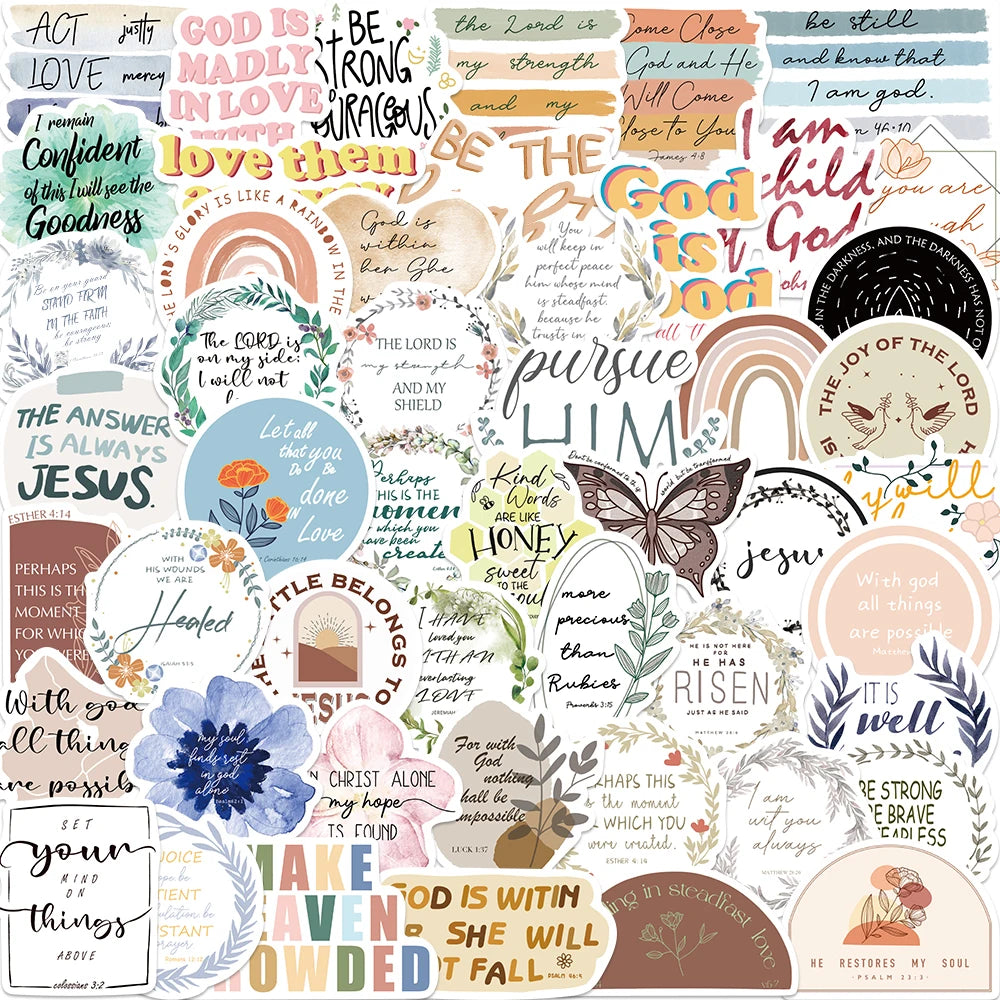 ACT justly
LOVE mercy
GOD IS
MADLY
IN LOVE
WITH
BE
STRONG
COURAGEOUS
the Lord is
my strength
and my
Come Close
God and He
Will Come
Close to You
James 4:8
be still
and know that
I am god.
46:10
I remain
Confident
of this I will see the
Goodness
love them
BE THE
God
is
Good
I am
child
of God
you are
HE LORD'S GLORY IS LIKE A RAINBOW IN THE
God is
within
her She
You
will keep in
perfect peace
him whose mind
is steadfast,
because he
trusts in
IN THE DARKNESS, AND THE DARKNESS HAS NOT O
Be on your guard
STAND FIRM
IN THE FAITH
be courageous
be strong
The LORD is
on my side;
I will not
THE LORD IS
my strength
AND MY
SHIELD
pursue
HIM
THE JOY OF THE LORD
IS
THE ANSWER
IS ALWAYS
JESUS.
Let all
that you
Do Be
done
IN
Love
Corinthians 16:14
Perhaps
THIS IS THE
moment
which you
have been
create
Kind
Words
ARE LIKE
HONEY
sweet
TO THE
soul
Don't be conformed to this world but be transformed
jesus
y will
ESTHER 4:14
PERHAPS
THIS IS TH
MOMENT
FOR WHIC
YOU WERE
WITH
HIS WOUNDS
WE ARE
Healed
ISAIAH 53:5
THE LITTLE BELONGS TO
JESUS
I HAVE
loved you
WITH AN
everlasting
LOVE
JEREMIAH
more
precious
than
Rubies
Proverbs 3:15
HE IS NOT HERE
FOR
HE HAS
RISEN
JUST AS HE SAID
MATTHEW 28:6
With god
all things
are possible
Matthew
With god
all thing
are possib
my soul
finds rest
in god
alone
Psalm62:1
IN CHRIST ALONE
my hope
IS FOUND
For with
God
nothing
shall be
impossible
LUCK 1:37
ERHAPS THIS
is the moment
WHICH YOU
were created.
ESTHER 4:14
I am
wit you
always
MATTHEW 28:20
IT IS
well
BE STRONG
BE BRAVE
FEARLESS
SET
your
MIND
ON
things
ABOVE
colossians 3:2
JOICE
hope be
TIENT
ulation, be
NSTANT
prayer
Romans 12:12
MAKE
HEAVEN
CROWDED
GOD IS WITIN
R SHE WILL
T FALL
PSALM 46:5
ing in steadfast love
HE RESTORES MY SOUL
·PSALM 23:3·